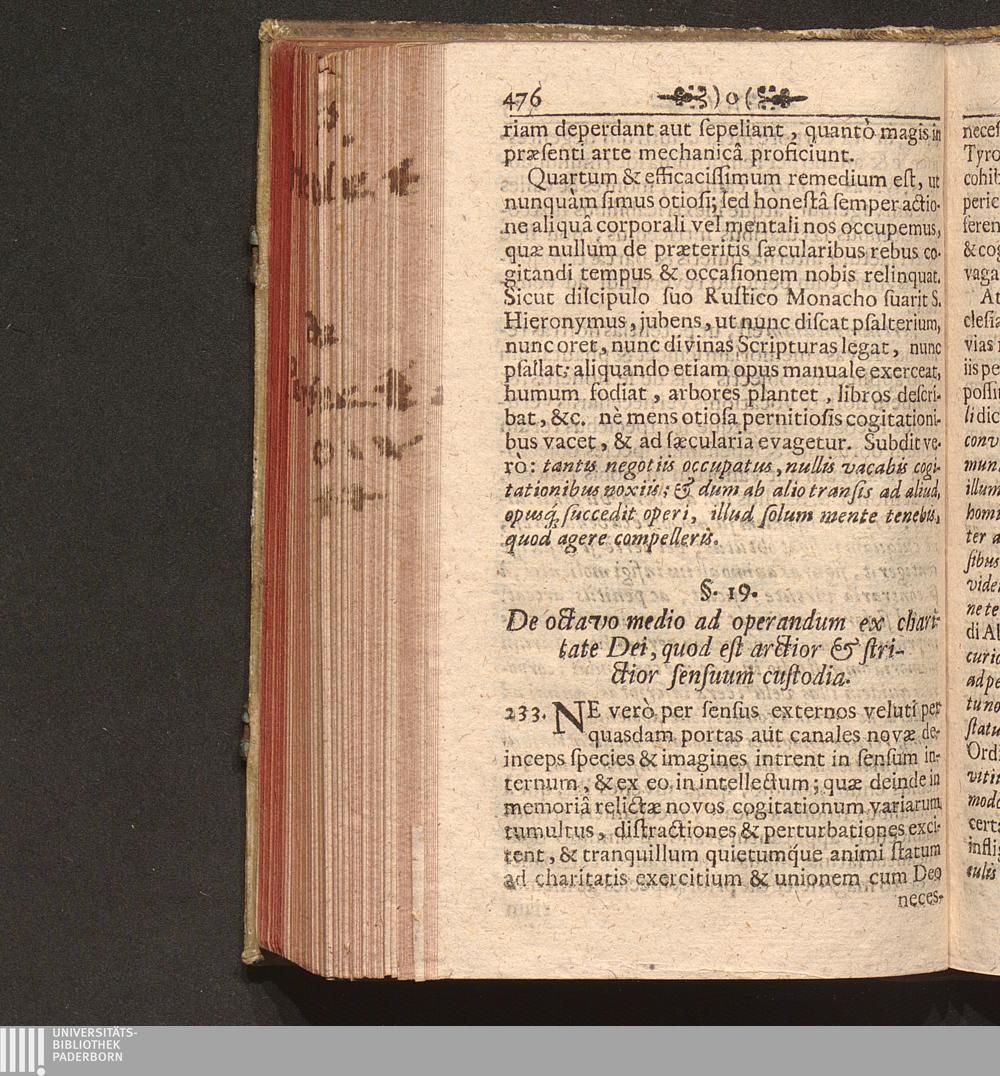 476 )o(
riam deperdant aut ſepeliant, quantò magis in
præſenti arte mechanicâ proficiunt.
Quartum & efficaciſſimum remedium eſt, ut
nunquàm ſimus otioſi; ſed honeſtâ ſemper actio-
ne aliquâ corporali vel mentali nos occupemus,
quæ nullum de præteritis ſæcularibus rebus co-
gitandi tempus & occaſionem nobis relinquat.
Sicut diſcipulo ſuo Ruſtico Monacho ſuaſit S.
Hieronymus, jubens, ut nunc diſcat pſalterium,
nunc oret, nunc divinas Scripturas legat, nunc
pſallat; aliquando etiam opus manuale exerceat,
humum fodiat, arbores plantet, libros deſcri-
bat, &c. nè mens otioſa pernitioſis cogitationi-
bus vacet, & ad ſæcularia evagetur. Subdit ve-
rò: tantis negotiis occupatus, nullis vacabis cogi-
tationibus noxiis; & dum ab alio tranſis ad aliud,
opusq́; ſuccedit operi, illud ſolum mente tenebis,
quod agere compelleris.
§. 19.
De octavo medio ad operandum ex chari-
tate Dei, quod eſt arctior & ſtri-
ctior ſenſuum cuſtodia.
233. NE verò per ſenſus externos veluti per
quasdam portas aut canales novæ de-
inceps ſpecies & imagines intrent in ſenſum in-
ternum, & ex eo in intellectum; quæ deinde in
memoriâ relictæ novos cogitationum variarum
tumultus, diſtractiones & perturbationes exci-
tent, & tranquillum quietumq́ue animi ſtatum
ad charitatis exercitium & unionem cum Deo
neces-
neceſ
Tyro
cohib
peric
feren
& cog
vaga
At
cleſia
vias
iis pe
poſſit
li dic
conv
mun
illum
homi
ter a
ſibus
vide
ne te
di Al
curio
ad pe
tuno
ſtatu
Ordi
vitii
modo
cert
inflig
culis
UNIVERSITÄTS-
BIBLIOTHEK
PADERBORN